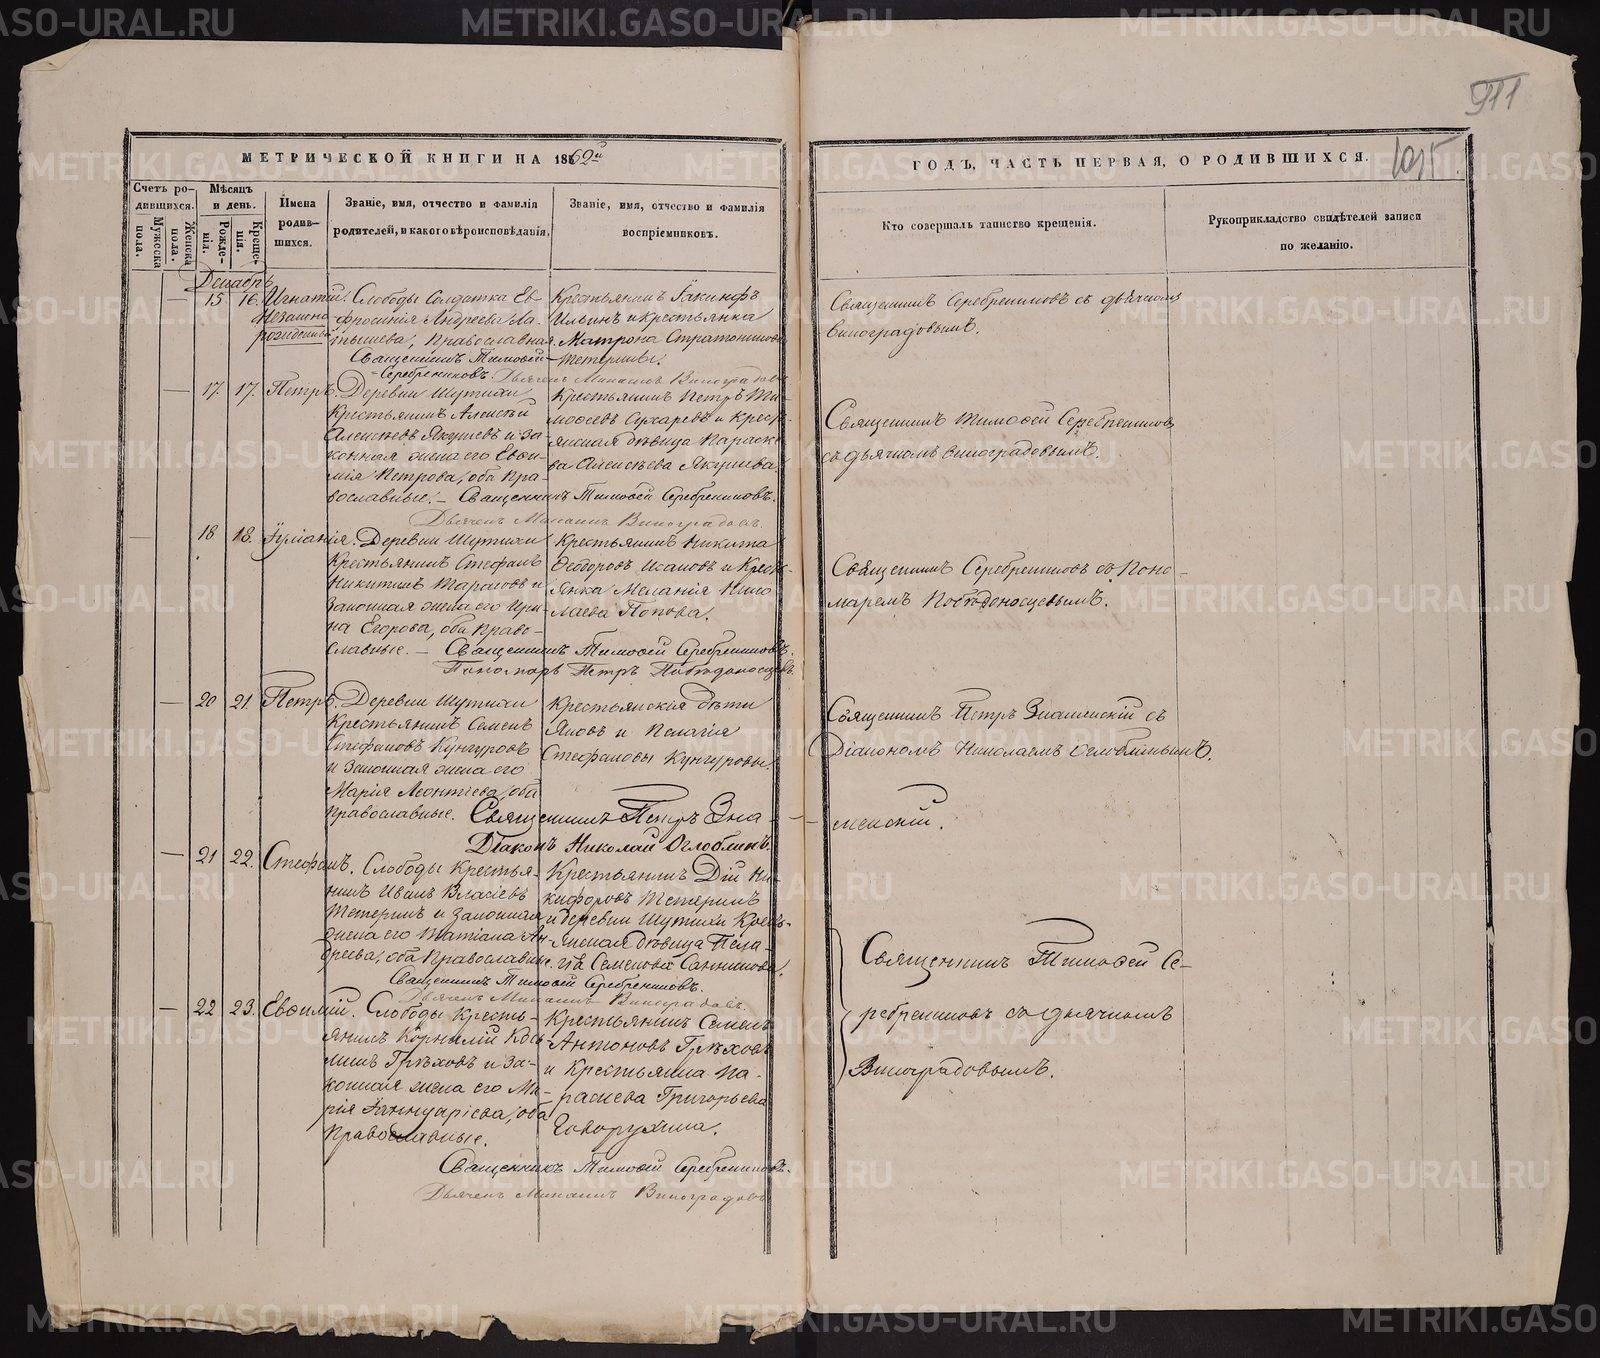 911
МЕТРИЧЕСКОЙ КНИГИ НА 1862й
ГОДЪ, ЧАСТЬ ПЕРВАЯ, О РОДИВШИХСЯ.
Счетъ родившихся.
Мужеска пола.
Женска пола.
Мѣсяцъ и день.
Рожденія.
Крещенія.
Имена родившихся.
Званіе, имя, отчество и фамилія
родителей, и какого вѣроисповѣданія.
Званіе, имя, отчество и фамилія
воспріемниковъ.
Кто совершалъ таинство крещенія.
Рукоприкладство свидѣтелей записи
по желанію.
Декабрь
15 16. Игнатій
Незаконно
рожденный
Слободы Солдатка Ев-
фросинія Андреева
Православная.
Священникъ Тимоѳей
Серебрениковъ. Дьячекъ Виноградовъ
Крестьянинъ Іакинфъ
Ильинъ и крестьянка
Матрона Стратоникова
Тетерины.
Священникъ Серебрениковъ съ дьячкомъ
Виноградовымъ.
17. 17. Петръ.
Деревни Шутихи
Крестьянинъ Алексѣй
Алексѣевъ Якушевъ и за-
конная жена его Евѳи-
мія Петрова, оба Пра-
вославные. – Священникъ Тимоѳей Серебрениковъ.
Дьячекъ Виноградовъ.
Крестьянинъ Петръ Ти-
моѳеевъ Сухаревъ и Крест-
янская дѣвица Параске-
ва Алексѣева Якушева
Священникъ Тимоѳей Серебрениковъ
съ дьячкомъ Виноградовымъ.
18 18. Іуліанія.
Деревни Шутихи
Крестьянинъ Стефанъ
Никитинъ и
Законная жена его Ири-
на Егорова, оба Право-
славные. – Священникъ Тимоѳей Серебрениковъ.
Пономарь Петръ Побѣдоносцевъ.
Крестьянинъ Никита
Ѳеодоровъ Исаковъ и Крест-
янка Меланія Нико
лаева Попова.
Священникъ Серебрениковъ съ Поно-
маремъ Побѣдоносцевымъ.
20 21. Петръ.
Деревни Шутихи
Крестьянинъ Семенъ
Стефановъ Кунгуровъ
и Законная жена его
Марія Леонтіева, оба
Православные. Священникъ Петръ Зна-
менскій.
Діаконъ Николай Оглоблинъ.
Крестьянскія дѣти
Яковъ и Пелагія
Стефановы Кунгуровы.
Священникъ Петръ Знаменскій съ
Діакономъ Николаемъ Оглоблинымъ.
21 22. Стефанъ.
Слободы Крестья-
нинъ Иванъ Власіевъ
Тетеринъ и Законная
жена его Татіана Ан-
дреева, оба Православные.
Священникъ Тимоѳей Серебрениковъ.
Дьячекъ Виноградовъ.
Крестьянинъ Дій Ни-
кифоровъ Тетеринъ
и деревни Шутихи Крест-
янская дѣвица Пела-
гія Семенова Санникова.
Священникъ Тимоѳей Се-
ребрениковъ съ дьячкомъ
Виноградовымъ.
22 23. Евѳимій.
Слободы Кресть-
янинъ Корнилій
Грѣховъ и За-
конная жена его Ма-
рія Іаннуаріева, оба
Православные.
Крестьянинъ Семенъ
Антоновъ Грѣховъ
и Крестьянка Па-
раскева Григорьева
Говорухина.
Священникъ Тимоѳей Серебрениковъ.
Дьячекъ Виноградовъ
METRIKI.GASO-URAL.RU